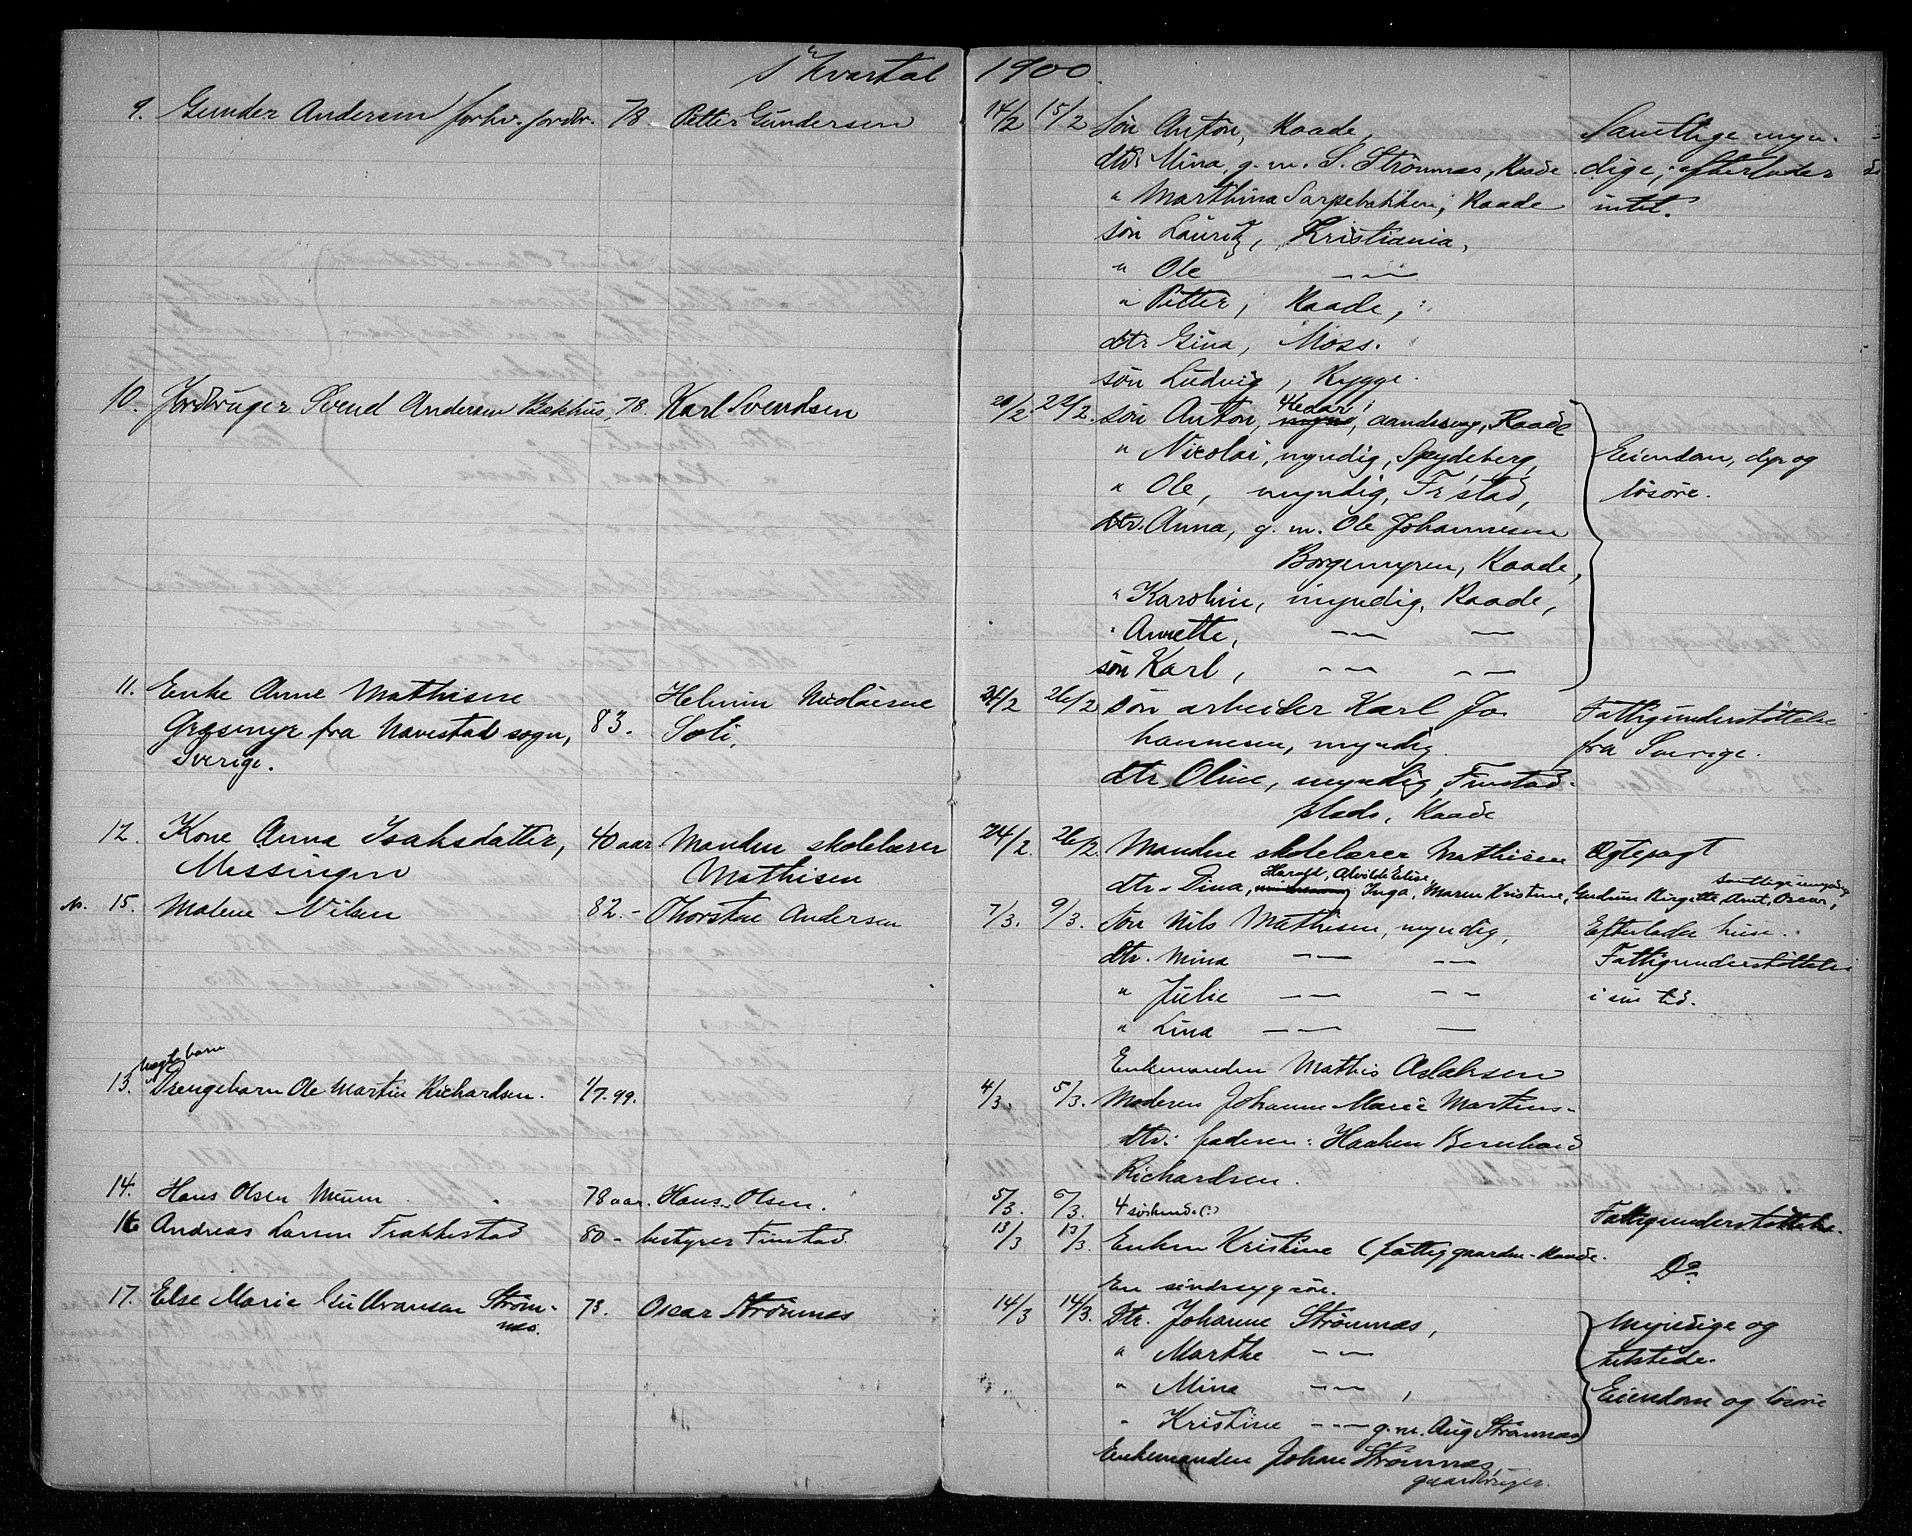 1 Kvartal 1900.
9. Gunder Andersen forhv. jordbr. 78. Petter Gundersen 14/2 15/2 Søn Anton, Raade, Samtlige myn-
dtr. Mina, g. m. S. Strømnæs, Raade. dige; efterlader
" Marthina Sarpebakken, Raade intet.
søn Lauritz, Kristiania,
" Ole — —
" Petter, Raade,
dtr Gina, Moss.
søn Ludvig, Rygge.
10. Jordbruger Svend Andersen Bakhus, 78. Karl Svendsen 20/2 22/2. søn Anton, aandssvag, Raade
" Nicolai, myndig, Spydeberg, Eiendom, dyr og
" Ole, myndig, Fr'stad, løsøre.
dtr. Anna, g. m. Ole Johannesen
Borgemyren, Raade,
" Karoline, myndig, Raade,
" Annette, — — —
søn Karl, — — — —
11. Enke Anne Mathisene Helmin Nicolaisene 24/2 26/2 søn arbeider Karl Jo- Fattigunderstøttelse
Græsmyr fra Navestad sogn, 83. Soli, hannesen, myndig. fra Sverige.
Sverige. dtr. Oline, myndig, Finstad-
plads, Raade
12. Kone Anna Isaksdatter, 40 aar. Manden skolelærer 24/2. 26/2. Manden skolelærer Mathisen Ægtepagt
Messingen Mathisen Harald, Alvilde Elise, samtlige umyndig
dtr. Dina, Inga, Maren Kristine, Gudrun Birgitte, Arnt, Oscar,
N. 15. Malene Nilsen 82.- Thorstene Andersen 7/3. 9/3. Søn Nils Mathisen, myndig, Efterlader huse.
dtr. Mina — — — — Fattigunderstøttelse
" Julie — — — — i sin tid.
" Lina — — —
Enkemanden Mathis Aslaksen
uægte barn
13. Drengebarn Ole Martin Richardsen. 1/7.99. 4/3. 5/3. Moderen Johanne Marie Martins-
dtr: faderen: Haaken Bernhard
Richardsen.
14. Hans Olsen Muum 78 aar. Hans Olsen. 5/3. 6/3. 4 søskende(?) Fattigunderstøttelse.
16 Andreas Larsen Frakkestad 80 - bestyrer Finstad 13/3 13/3. Enken Kristine (fattiggaarden-Raade. Do.
En sindssyg søn.
17. Else Marie Gulbransen Strøm- 73. Oscar Strømnæs 14/3 14/3. Dtr. Johanne Strømnæs, Myndige og
næs. " Marthe — — tilstede.
" Mina — — , Eiendom og løsøre
" Kristine — — g.m. Aug Strømnæs
Enkemanden Johan Strømnæs,
gaardbruger.